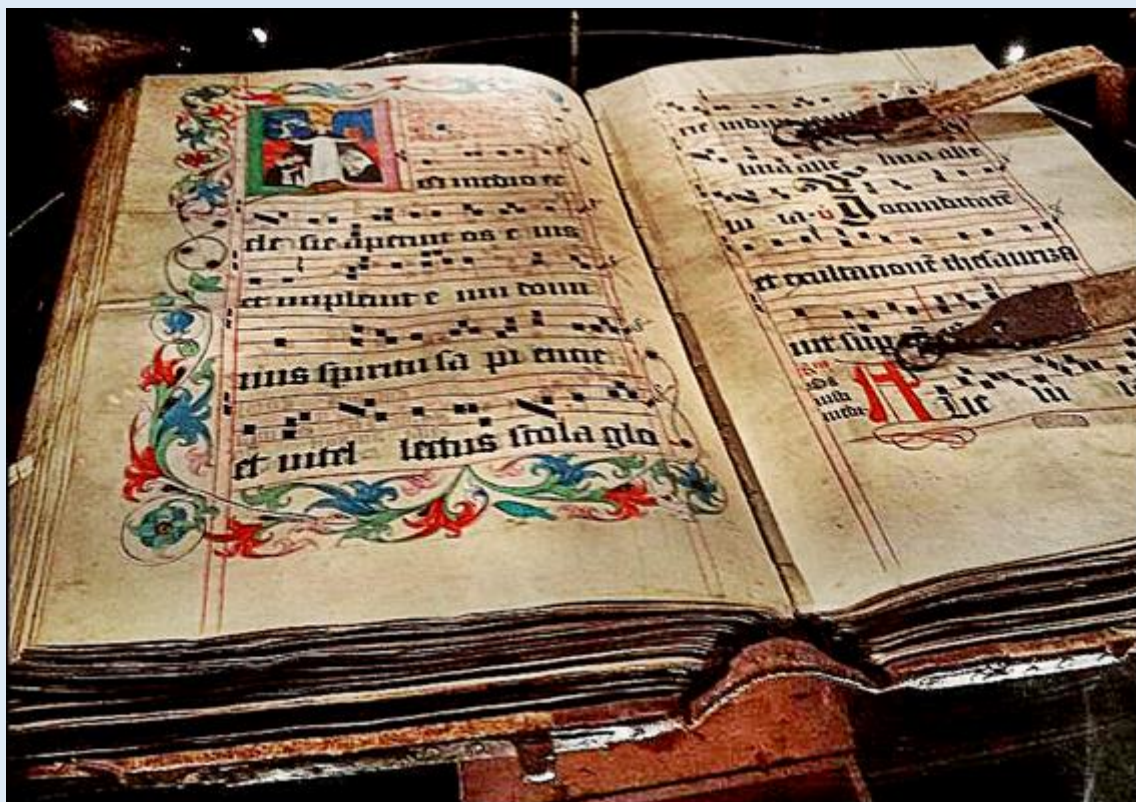 medio ec
cle sie aperuit os e ius
et impleuit e um domi
nus spiritu sa pi encie
et intel lectus stola glo
rie indu
luia alle luia alle
lu ia. v Jocunditatē
et exultationē thesauriza
uit sup
A Lle lu